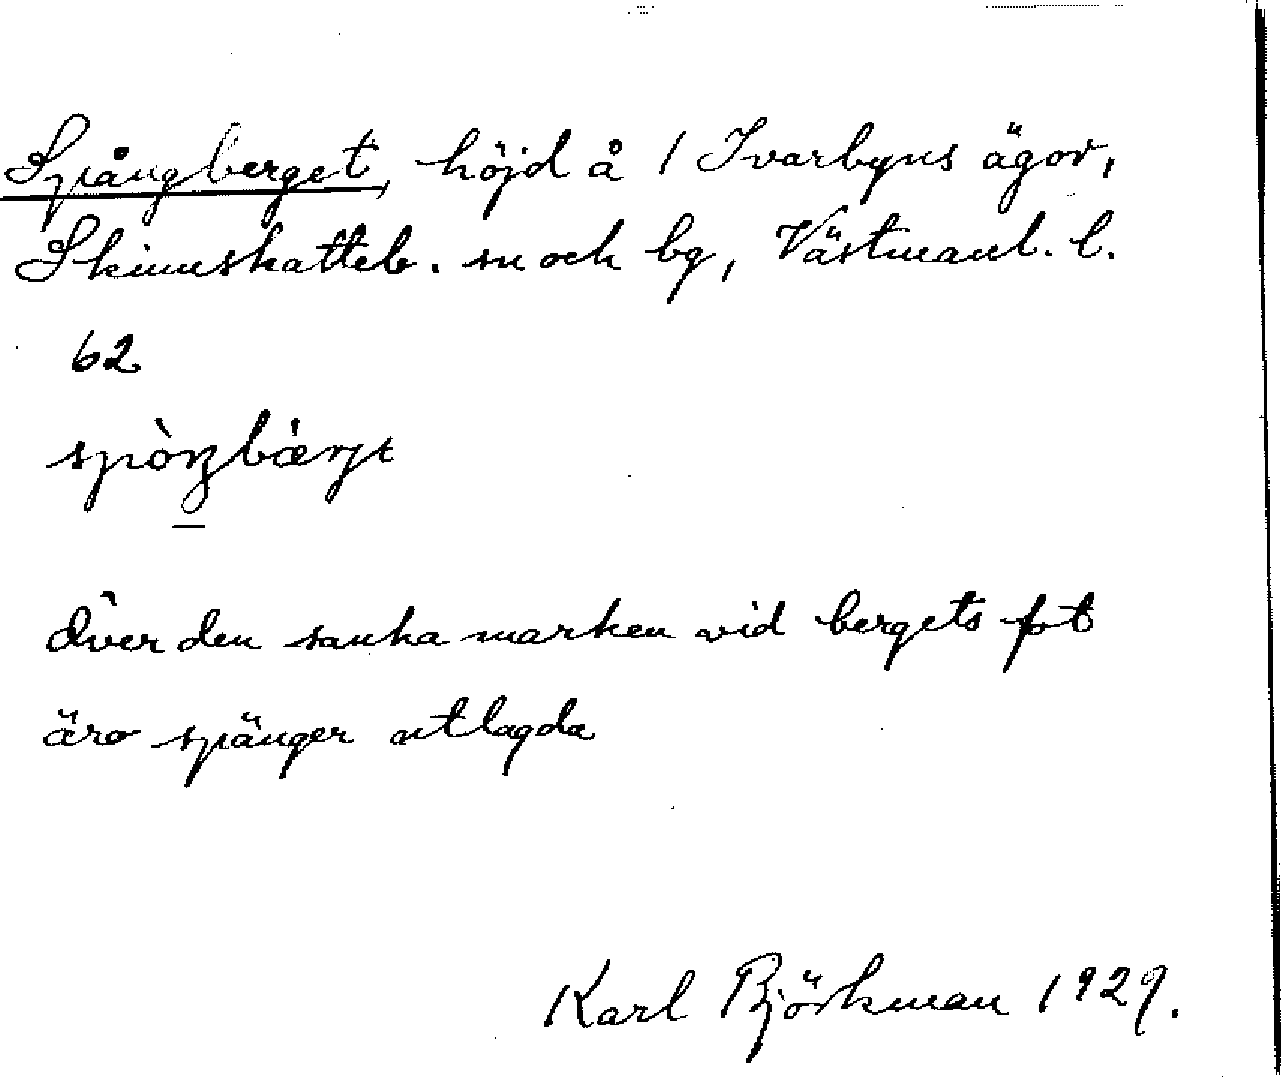 Spångberget, höjd å 1 Ivarbyns ägor,
Skinnskatteb. sn och bg, Västmanl. l.
62
spòŋbæ̀rjt
över den sanka marken vid bergets fot
äro spänger utlagda
Karl Björkman 1929.